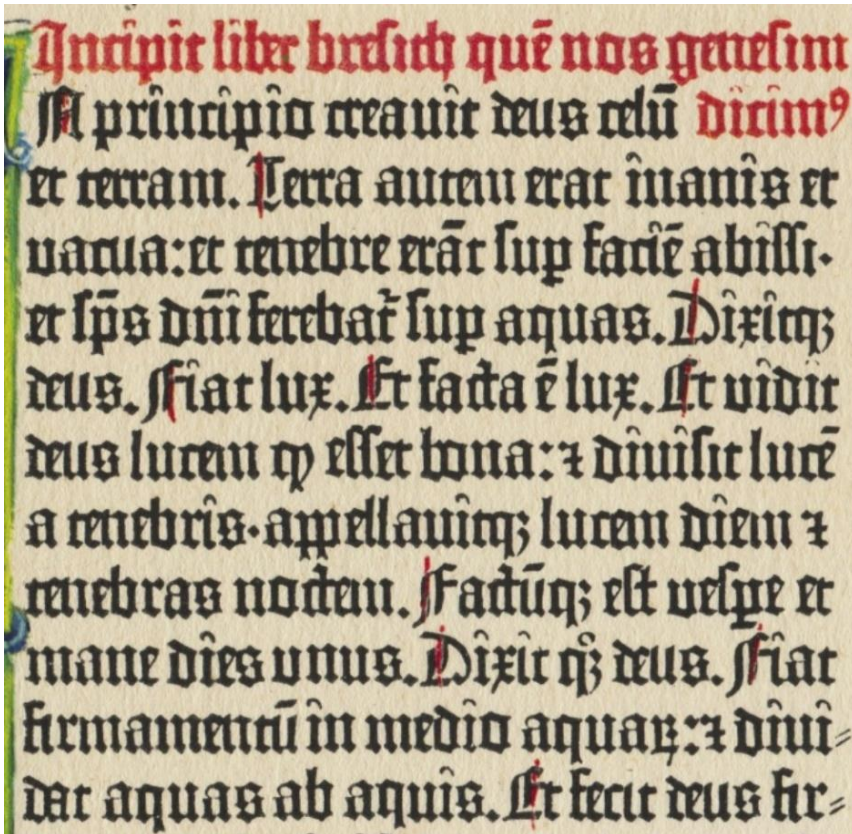 Incipit liber bresith quē nos genesim
A principio creauit deus celū dicimꝰ
et terram. Terra autem erat inanis et
vacua: et tenebre erāt sup faciē abissi·
et sp̄s dn̄i ferebat᷑ suꝑ aquas. Dixitqꝫ
deus. Fiat lux. Et facta ē lux. Et vidit
deus lucem ꝙ esset bona: ⁊ diuisit lucē
a tenebris· appellauitqꝫ lucem diem ⁊
tenebras noctem. Factūqꝫ est vesꝑe et
mane dies vnus. Dixit qꝫ deus. Fiat
firmamentū in medio aquaꝝ: ⁊ diui⸗
dat aquas ab aquis. Et fecit deus fir⸗